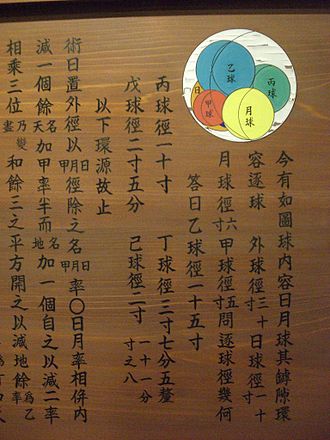 乙球
丙球
日
甲球
月球
今有如圖球内容日月球其罅隙環
容逐球 外球徑三十寸 日球徑一十寸
月球徑六寸 甲球徑五寸 問逐球徑幾何
答曰 乙球徑一十五寸
丙球徑一十寸 丁球徑三寸七分五釐
戊球徑二寸五分 己球徑二寸一十一分寸之八
以下環源故止
術曰置外徑以日月甲徑除之名日月甲率〇日月率相併内
減一個餘名天加甲率半而名地加一個自之以減二率
相乘三位 和餘三之平方開之以減地餘為乙率